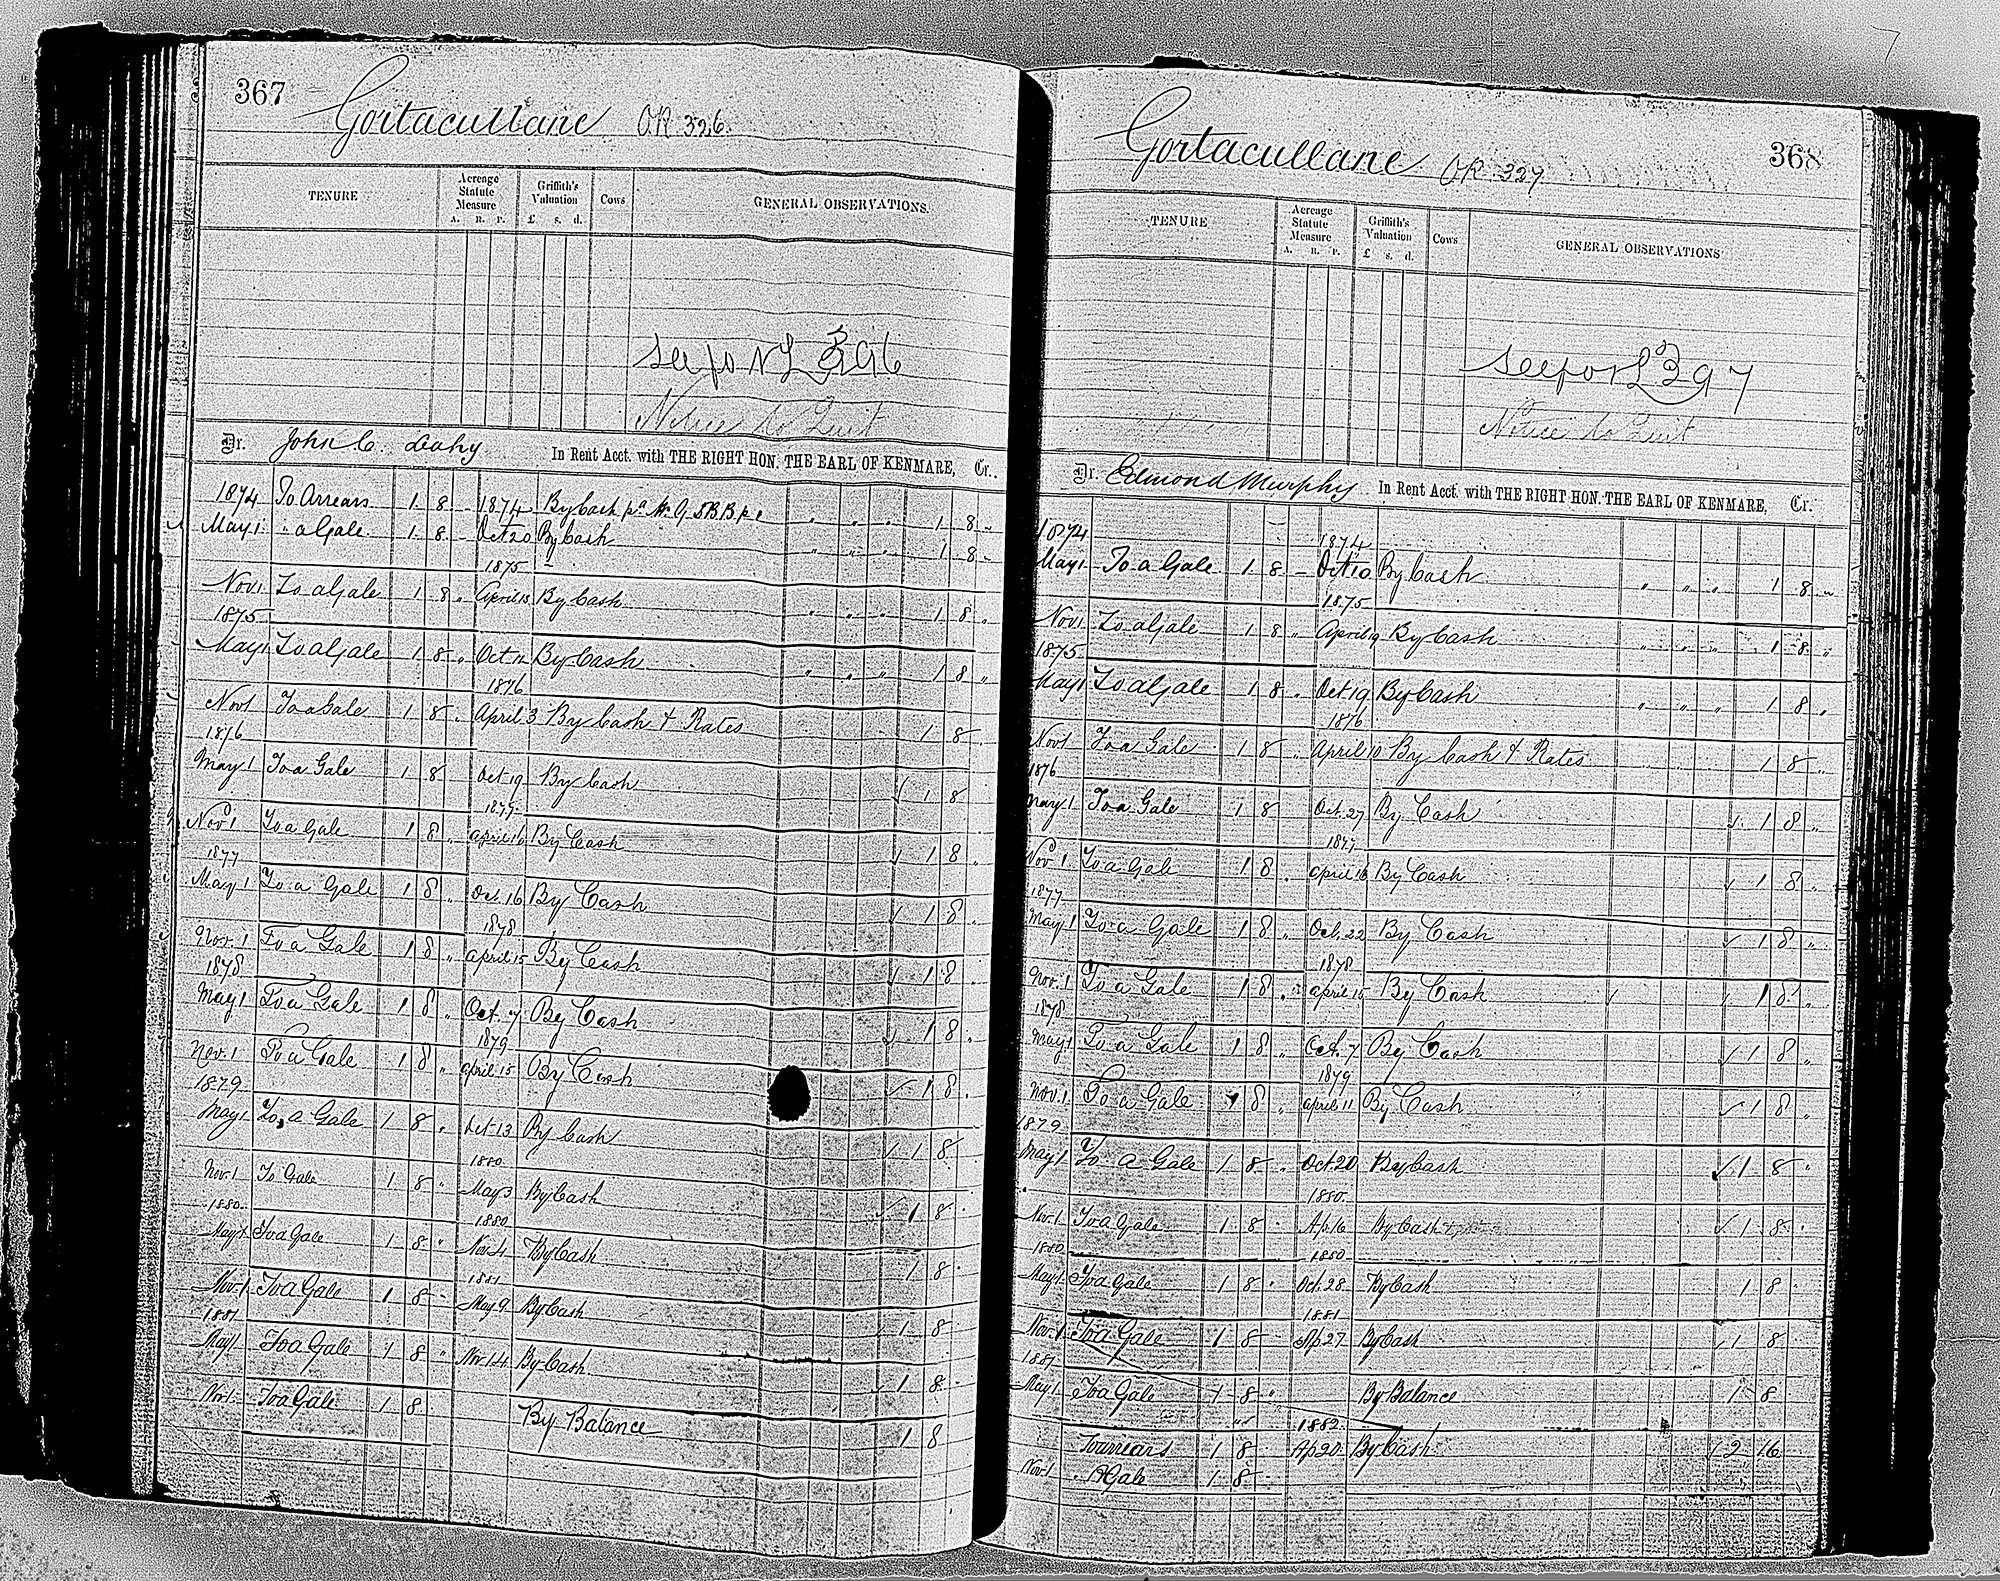 367
Gortacullane OR 326.
TENURE
Acreage Statute Measure
A. R. P.
Griffith's Valuation
£ s. d.
Cows
GENERAL OBSERVATIONS.
See for NL 396
Notice to Quit
Dr. John C. Leahy In Rent Acct. with THE RIGHT HON. THE EARL OF KENMARE, Cr.
1874 To Arrears 1 8 - 1874 By Cash
1 8 -
May 1 " a Gale 1 8 - Oct 20 By Cash " " " 1 8 -
1875
Nov 1 To a Gale 1 8 " April 13 By Cash " " " 1 8 "
1875
May 1 To a Gale 1 8 " Oct 12 By Cash " " " 1 8 "
1876
Nov 1 To a Gale 1 8 " April 3 By Cash & Rates 1 8
1876
May 1 To a Gale 1 8 Oct 19 By Cash √ 1 8
1877
Nov 1 To a Gale 1 8 " April 16 By Cash √ 1 8 "
1877
May 1 To a Gale 1 8 " Oct. 16 By Cash √ 1 8 "
1878
Nov. 1 To a Gale 1 8 " April 15 By Cash √ 1 8 "
1878
May 1 To a Gale 1 8 " Oct. 7 By Cash √ 1 8 "
1879
Nov. 1 To a Gale 1 8 " April 15 By Cash √ 1 8 "
1879
May 1 To a Gale 1 8 " Oct 13 By Cash √ 1 8
1880
Nov. 1 To Gale 1 8 " May 3 By Cash √ 1 8 "
1880. 1880
May 1 To a Gale 1 8 " Nov 4 By Cash 1 8 "
1881
Nov. 1 To a Gale 1 8 May 9 By Cash √ 1 8
1881
May 1 To a Gale 1 8 " Nov 14 By Cash √ 1 8
Nov 1 To a Gale 1 8 By Balance 1 8
368
Gortacullane OR 327
TENURE
Acreage Statute Measure
A. R. P.
Griffith's Valuation
£ s. d.
Cows
GENERAL OBSERVATIONS
See for NL 397
Notice to Quit
Dr. Edmond Murphy In Rent Acct. with THE RIGHT HON. THE EARL OF KENMARE, Cr.
1874 1874
May 1 To a Gale 1 8 - Oct 10 By Cash " " " 1 8 "
1875
Nov 1 To a Gale 1 8 " April 19 By Cash " " " 1 8 "
1875
May 1 To a Gale 1 8 " Oct 19 By Cash " " " 1 8 "
1876
Nov 1 To a Gale 1 8 " April 10 By Cash & Rates 1 8 "
1876
May 1 To a Gale 1 8 Oct. 27 By Cash √ 1 8 "
1877
Nov 1 To a Gale 1 8 " April 16 By Cash √ 1 8 "
1877
May 1 To a Gale 1 8 " Oct. 22 By Cash √ 1 8 "
1878
Nov. 1 To a Gale 1 8 " April 15 By Cash √ 1 8 "
1878
May 1 To a Gale 1 8 " Oct. 7 By Cash √ 1 8 "
1879
Nov. 1 To a Gale 1 8 " April 11 By Cash √ 1 8 "
1879
May 1 To a Gale 1 8 " Oct 20 By Cash √ 1 8 "
1880.
Nov. 1 To a Gale 1 8 " Ap 16 By Cash √ 1 8 "
1880 1880
May 1 To a Gale 1 8 " Oct. 28 By Cash 1 8 "
1881
Nov. 1 To a Gale 1 8 Ap 27 By Cash √ 1 8
1881
May 1 To a Gale 1 8 " By Balance 1 8
1882
To arrears 1 8 Ap 20 By Cash √ 2 16
Nov 1 " a Gale 1 8